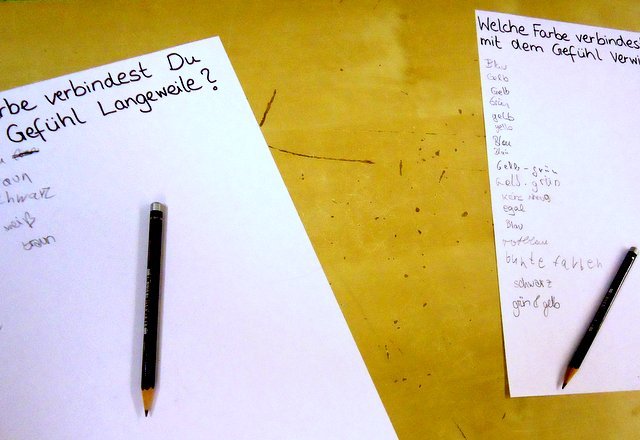 rbe verbindest Du
Gefühl Langeweile?
aun
chwarz
weiß
braun
Welche Farbe verbindes
mit dem Gefühl Verwi
Blau
Gelb
Gelb
Grün
gelb
gelb
Blau
Blau
Gelb-grün
Gelb-grün
egal
Blau
rotblau
bunte farben
schwarz
grün & gelb